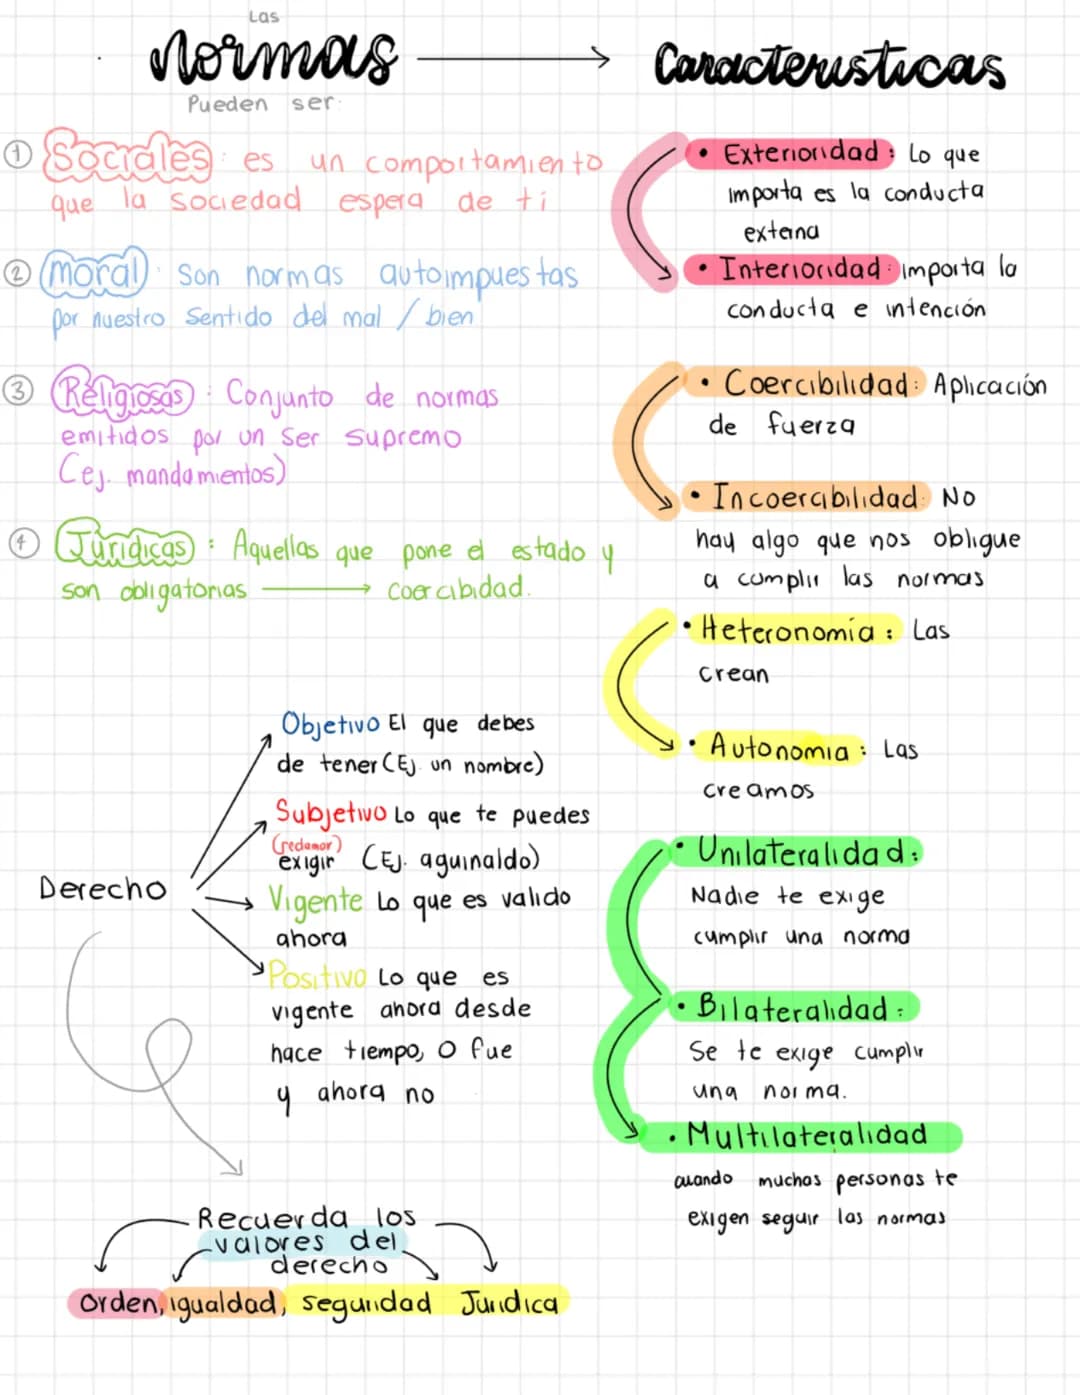 Las
Normas
Pueden ser:
① Sociales: es un comportamiento
que la sociedad espera de ti
② Moral: Son normas autoimpuestas
por nuestro sentido del mal / bien
③ Religiosas: Conjunto de normas
emitidos por un Ser supremo
(ej. mandamientos)
④ Jurídicas: Aquellas que pone el estado y
son obligatorias → coercibidad.
Caracteristicas
• Exterioridad: Lo que
importa es la conducta
externa
• Interioridad: importa la
conducta e intención
• Coercibilidad: Aplicación
de fuerza
• Incoercibilidad: No
hay algo que nos obligue
a cumplir las normas
• Heteronomía: Las
crean
• Autonomia: Las
creamos
• Unilateralidad:
Nadie te exige
cumplir una norma
• Bilateralidad:
Se te exige cumplir
una norma.
• Multilateralidad
cuando muchas personas te
exigen seguir las normas
Derecho
Objetivo El que debes
de tener (Ej. un nombre)
Subjetivo Lo que te puedes
(reclamar)
exigir (Ej. aguinaldo)
Vigente Lo que es valido
ahora
Positivo Lo que es
vigente ahora desde
hace tiempo, O fue
y ahora no
Recuerda los
valores del
derecho
Orden, igualdad, seguridad Juridica